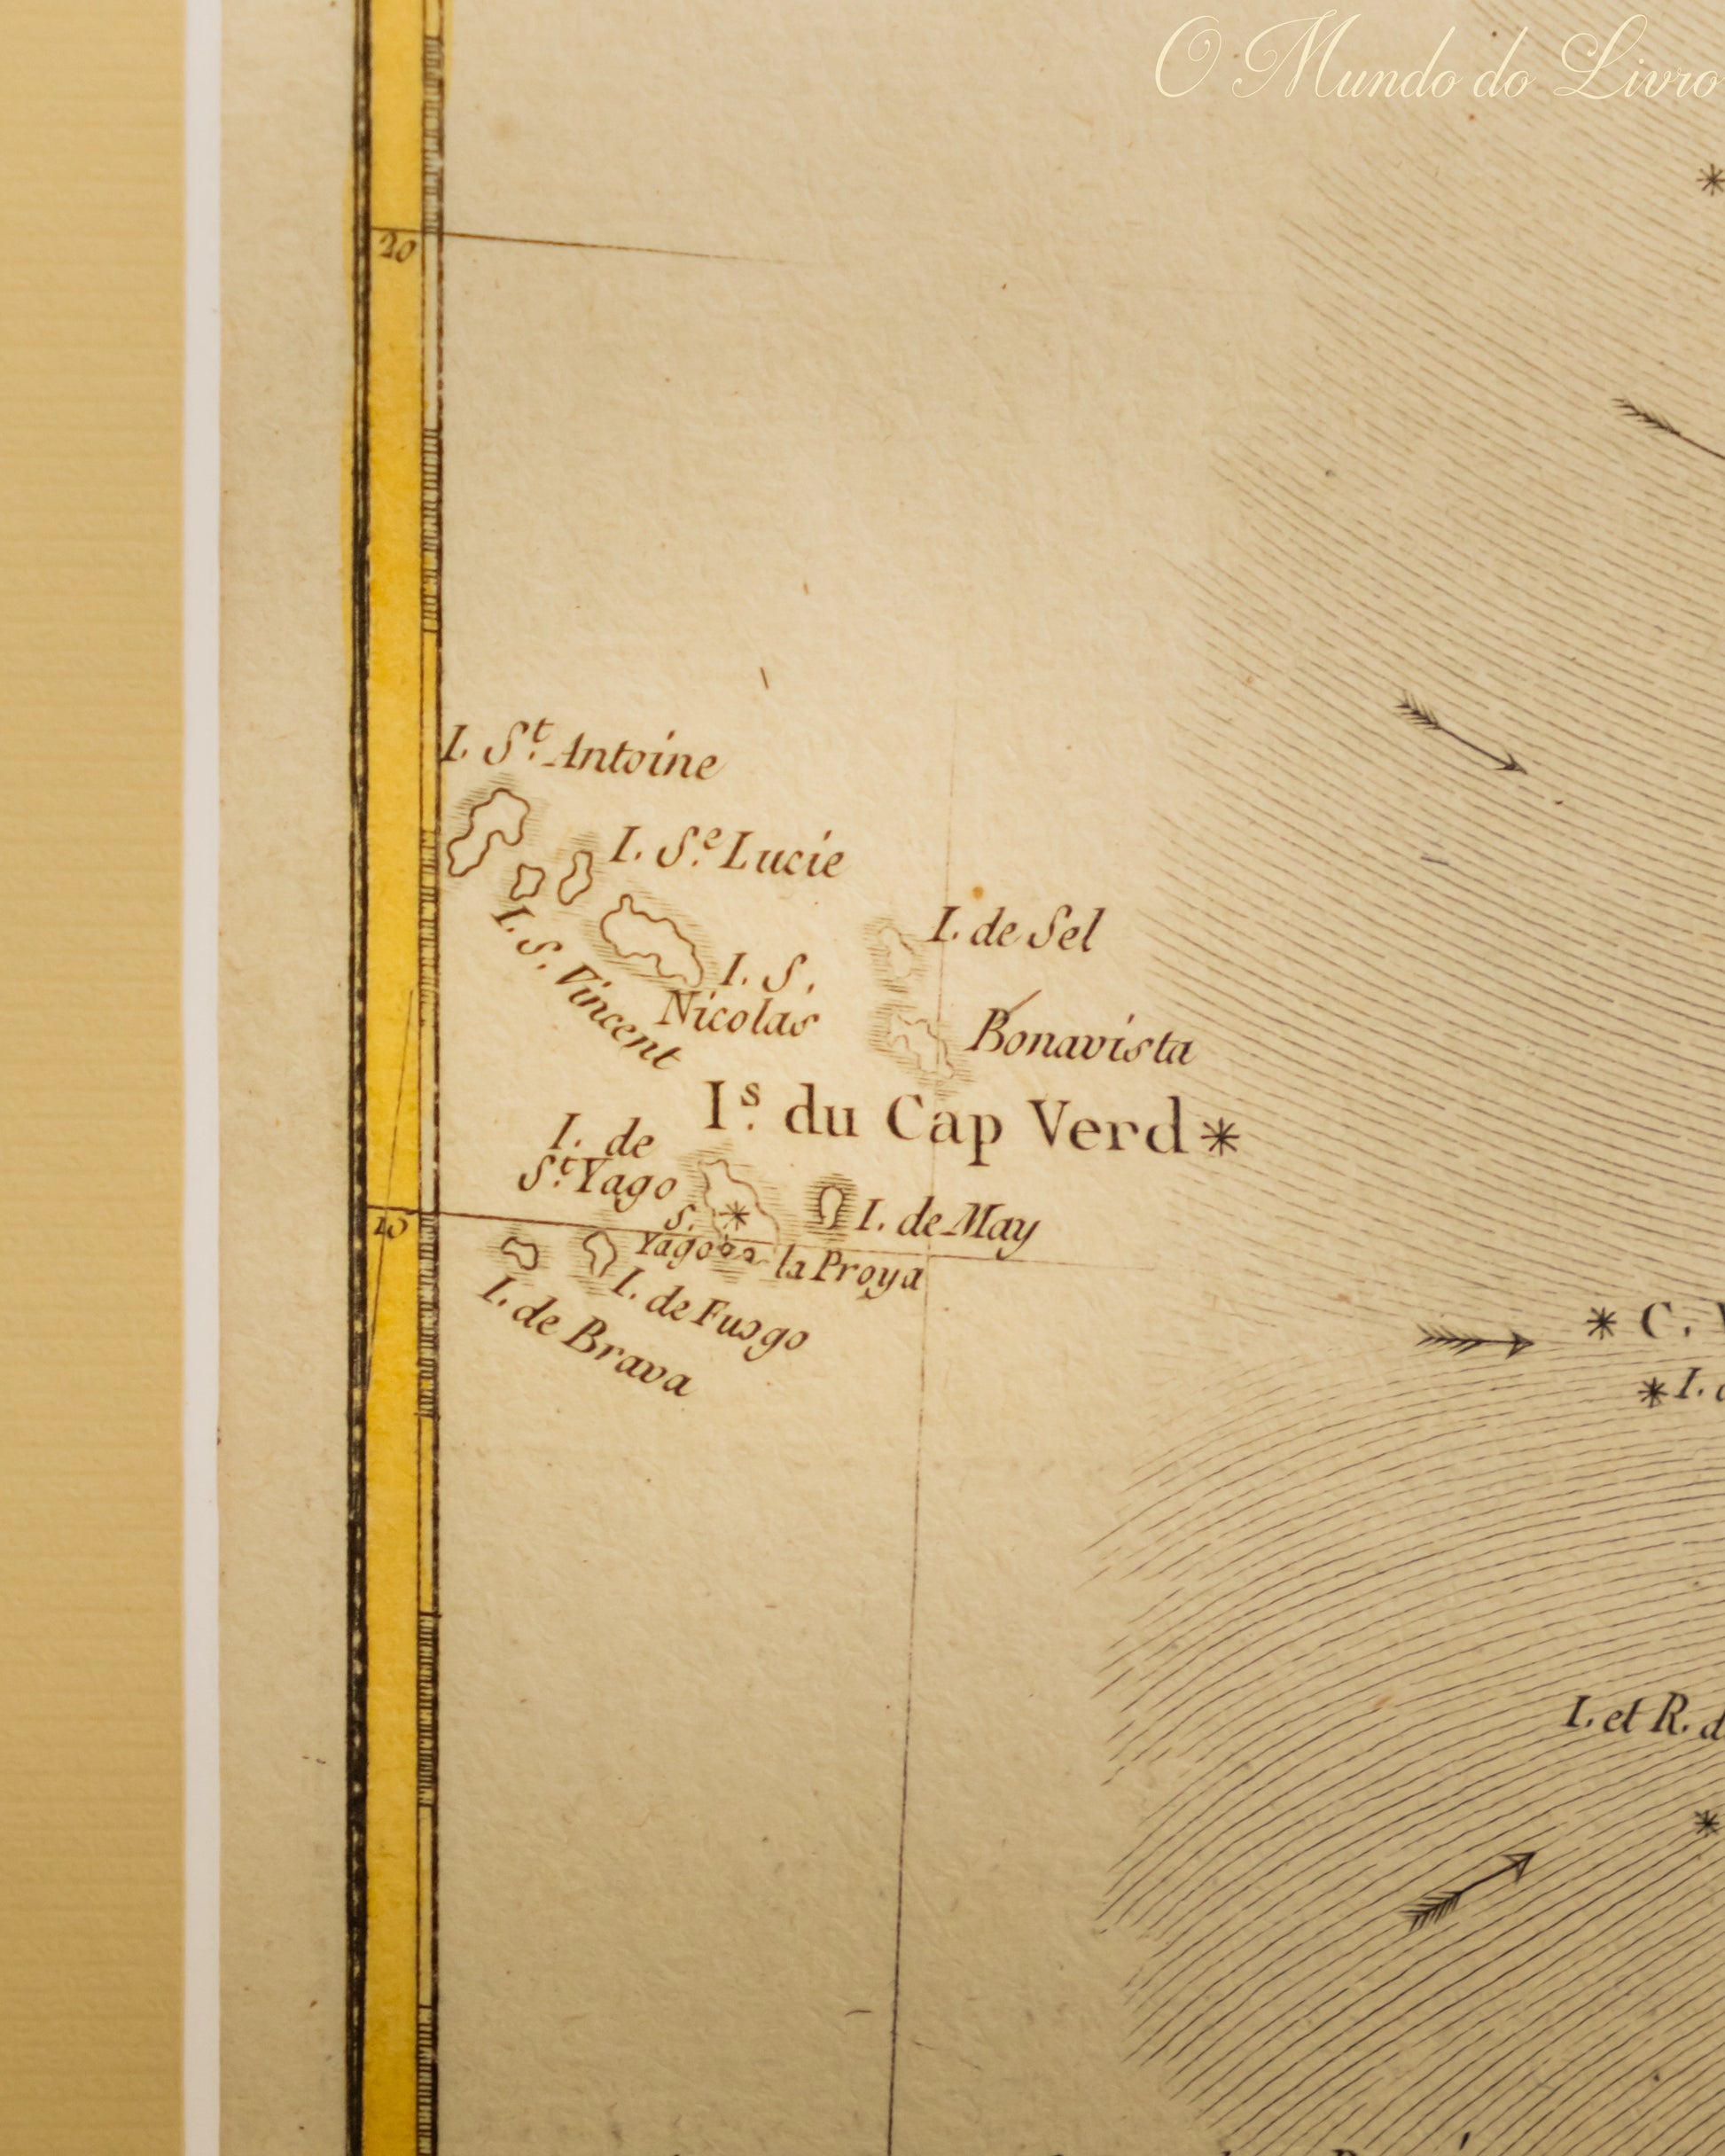 O Mundo do Livro
20
I. S.t Antoine
I. S.e Lucie
I. S. Vincent
I. S.
Nicolas
I. de Sel
Bonavista
I.s du Cap Verd
I. de
S.t Yago
S.
Yago
la Proya
I. de May
10
I. de Fuogo
I. de Brava
C.
I.
I. et R. d